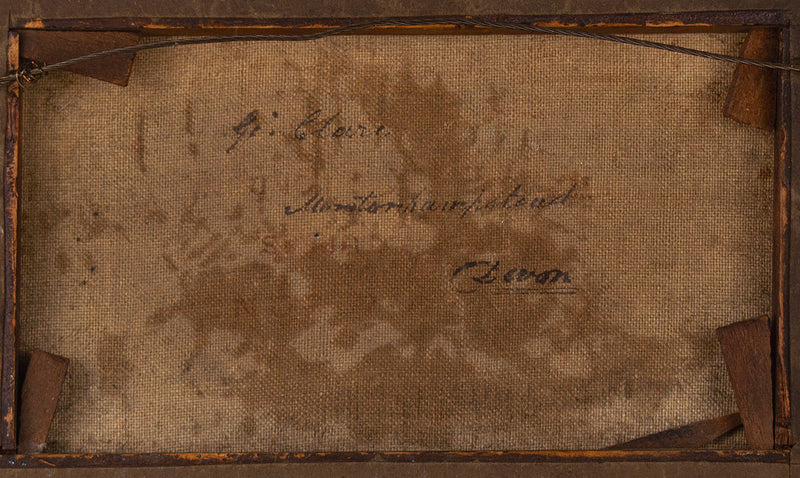 G. Clare
Moretonhampstead
Devon